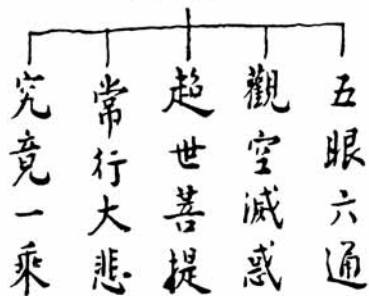 五眼六通
觀空滅惑
超世菩提
常行大悲
究竟一乘